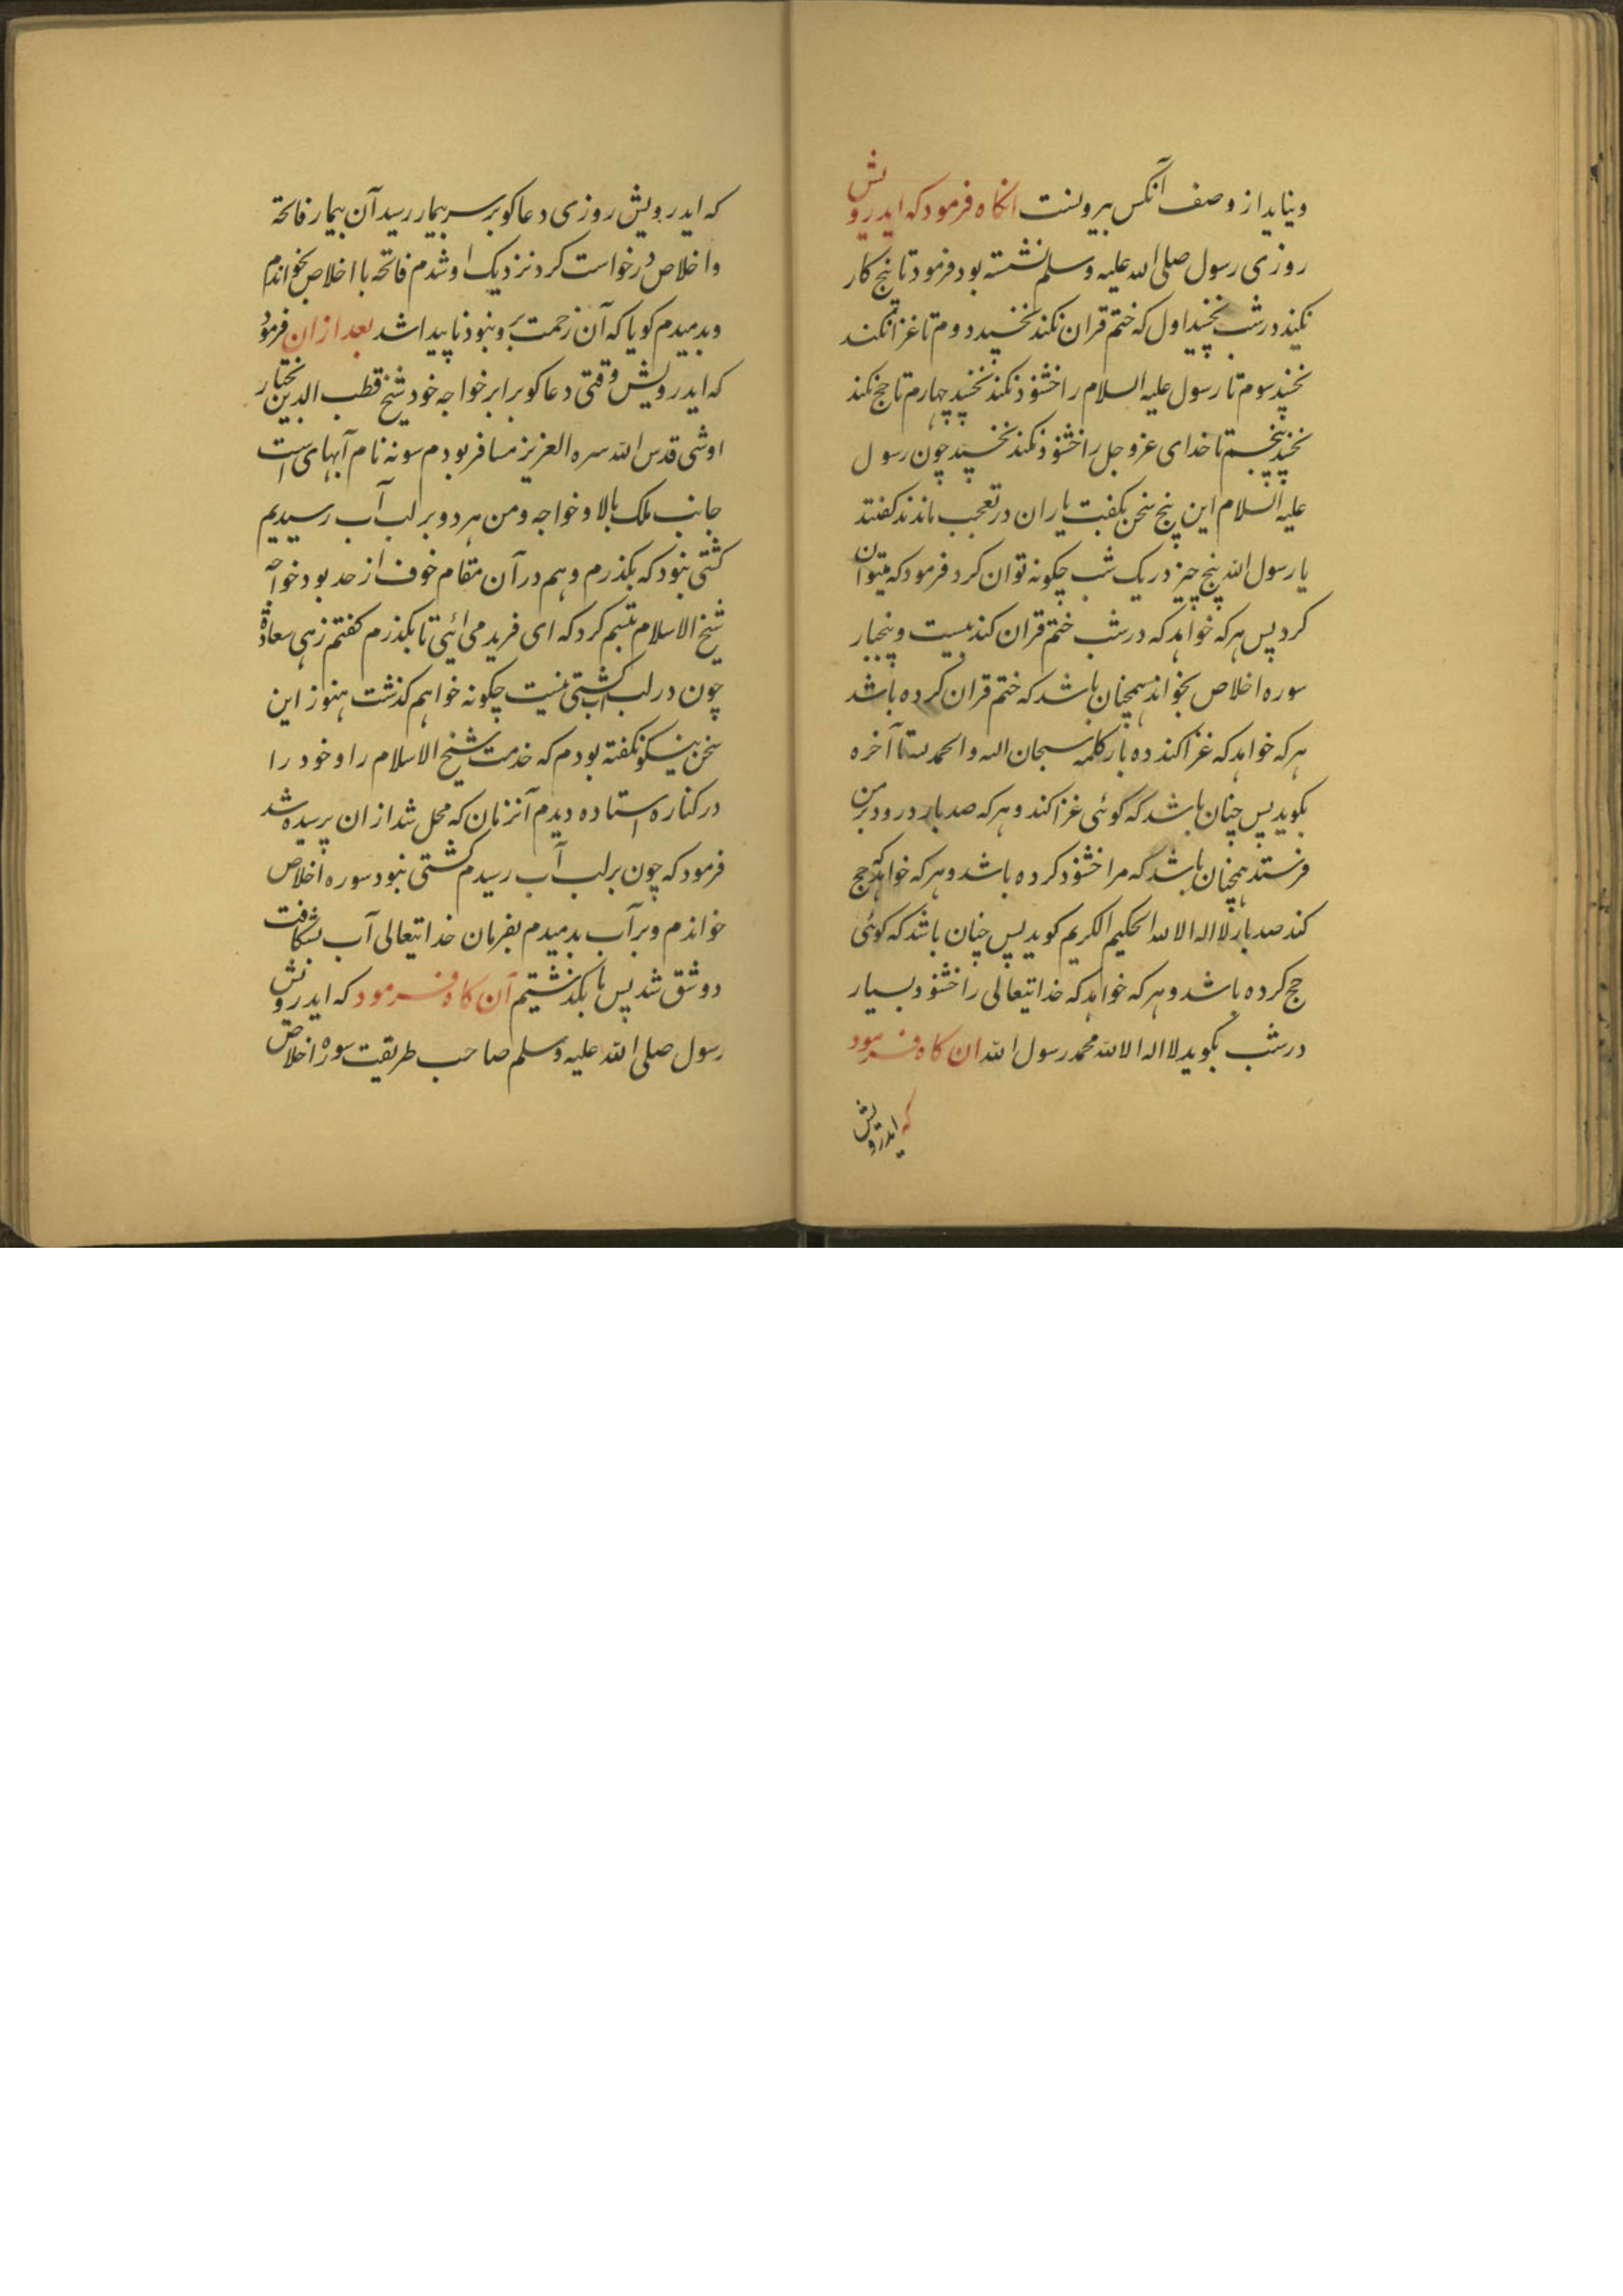 و بنا ید از وصف آنکس بیرونست انکاه فرمود که ایدرویش
روزی رسول صلی الله علیه وسلم نشسته بود فرمود تا پنج کار
نکنید در شب نخسپید اول که ختم قران نکند نخسپد دوم تا غزا نکند
نخسپد سوم تا رسول علیه السلام را خشنود نکند نخسپد چهارم تا حج نکند
نخسپد پنجم تا خدای عز و جل را خشنود نکند نخسپد چون رسول
علیه السلام این پنج سخن بکفت یاران در تعجب ماندند کفتند
یا رسول الله پنج چیز در یک شب چکونه توان کرد فرمود که میتوان
کرد پس هر که خواهد که در شب ختم قران کند بیست و پنجبار
سوره اخلاص بخواند همچنان باشد که ختم قران کرده باشد
هر که خواهد که غزا کند ده بار کلمه سبحان الله والحمد لله تا آخره
بکوید پس چنان باشد که گوئی غزا کند و هر که صد بار درود بر من
فرستد همچنان باشد که مرا خشنود کرده باشد و هر که خواهد که حج
کند صد بار لا اله الا الله الحکیم الکریم کوید پس چنان باشد که کوئی
حج کرده باشد و هر که خواهد که خدایتعالی را خشنود بسیار
در شب بکوید لا اله الا الله محمد رسول الله ان کاه فرمود
که ایدرویش
که ایدرویش روزی دعا کو بر سر بیمار رسید آن بیمار فاتحة
و اخلاص درخواست کرد نزدیک او شدم فاتحه با اخلاص بخواندم
و بدمیدم کویا که آن زحمت برو نبود ناپیدا شد بعد از ان فرمود
که ایدرویش وقتی دعا کو برابر خواجه خود شیخ قطب الدین بختیار
اوشی قدس الله سره العزیز مسافر بودم سونه نام آبهای است
جانب ملک بالا و خواجه و من هر دو بر لب آب رسیدیم
کشتی نبود که بکذرم و هم در آن مقام خوف از حد بود خواجه
شیخ الاسلام تبسم کرد که ای فرید می ائی تا بکذرم کفتم زهی سعادة
چون در لب آب کشتی نیست چکونه خواهم کذشت هنوز این
سخن نیکو نکفته بودم که خدمت شیخ الاسلام را و خود را
در کناره استاده دیدم آنزمان که محل شد از ان پرسیده شد
فرمود که چون بر لب آب رسیدم کشتی نبود سوره اخلاص
خواندم و بر آب بدمیدم بفرمان خدایتعالی آب بشکافت
دو شق شد پس ما بکذشتیم آن کاه فرمود که ایدرویش
رسول صلی الله علیه وسلم صاحب طریقت سورۀ اخلاص